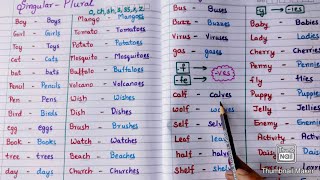 Singular - Plural
o, ch, sh, s, x, z
Boy - Boys
Girl - Girls
Toy Toys
cat Cats
bat bats
Pencil Pencils
Pen - Pens
Bird - Birds
egg eggs
Book - Books
tree - trees
day - days
Mango - Mangoes
Tomato Tomatoes
Potato Potatoes
Mosquito Mosquitoes
Buffalo Buffaloes
Volcano Volcanoes
Wish - Wishes
Dish Dishes
Brush - Brushes
Watch Watches
Beach - Beaches
Church - Churches
Bus - Buses
Buzz - Buzzes
gas - gases
-f
-fe
-ves
calf - Calves
wolf -
self -
Leaf -
half
Shelf -
-y -ies
Baby Babies
Lady Ladies
Cherry - Cherries
fly flies
Puppy Puppies
Jelly Jellies
Enemy - Enemies
Activity
Daisy
Thumbnail Maker